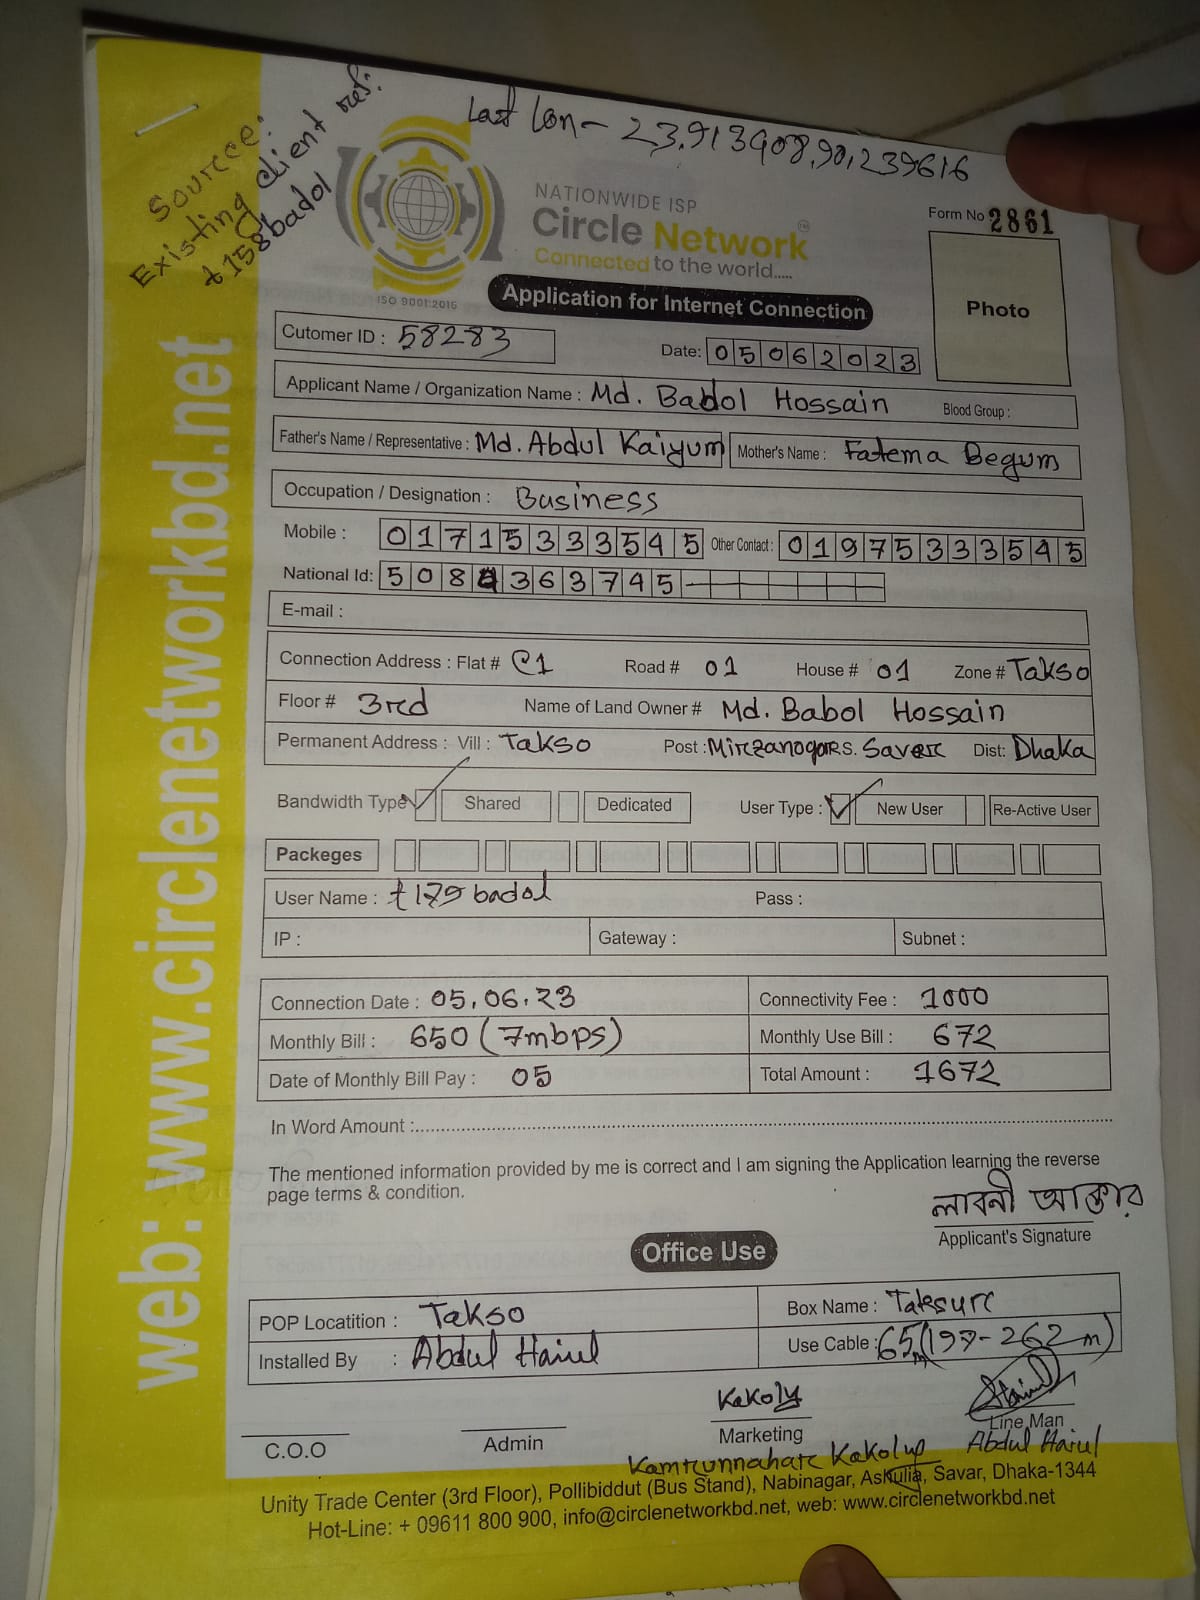 Last Lon - 23.913908,90,239616
Source:
Existing client ref:
t158badol
NATIONWIDE ISP
Circle Network
Connected to the world.....
ISO 9001:2015
Form No 2861
Photo
Application for Internet Connection
Cutomer ID : 58283
Date: 05062023
Applicant Name / Organization Name : Md. Badol Hossain Blood Group :
Father's Name / Representative : Md. Abdul Kaiyum Mother's Name : Fatema Begum
Occupation / Designation : Business
Mobile : 01715333545 Other Contact : 01975333545
National Id: 5084363745
E-mail :
Connection Address : Flat # C1 Road # 01 House # 01 Zone # Takso
Floor # 3rd Name of Land Owner # Md. Babol Hossain
Permanent Address : Vill : Takso Post : Mirzanogar S. Saver Dist: Dhaka
Bandwidth Type Shared Dedicated User Type : New User Re-Active User
Packeges
User Name : t179badol Pass :
IP : Gateway : Subnet :
Connection Date : 05.06.23 Connectivity Fee : 1000
Monthly Bill : 650 (7mbps) Monthly Use Bill : 672
Date of Monthly Bill Pay : 05 Total Amount : 1672
In Word Amount :
The mentioned information provided by me is correct and I am signing the Application learning the reverse
page terms & condition.
লাবনী আক্তার
Applicant's Signature
Office Use
POP Locatition : Takso Box Name : Taksurc
Installed By : Abdul Hairul Use Cable : 65m (197-262m)
Kakoly
C.O.O Admin Marketing Line Man
Kamrunnahar Kakoly Abdul Hairul
Unity Trade Center (3rd Floor), Pollibiddut (Bus Stand), Nabinagar, Askulia, Savar, Dhaka-1344
Hot-Line: + 09611 800 900, info@circlenetworkbd.net, web: www.circlenetworkbd.net
web: www.circlenetworkbd.net